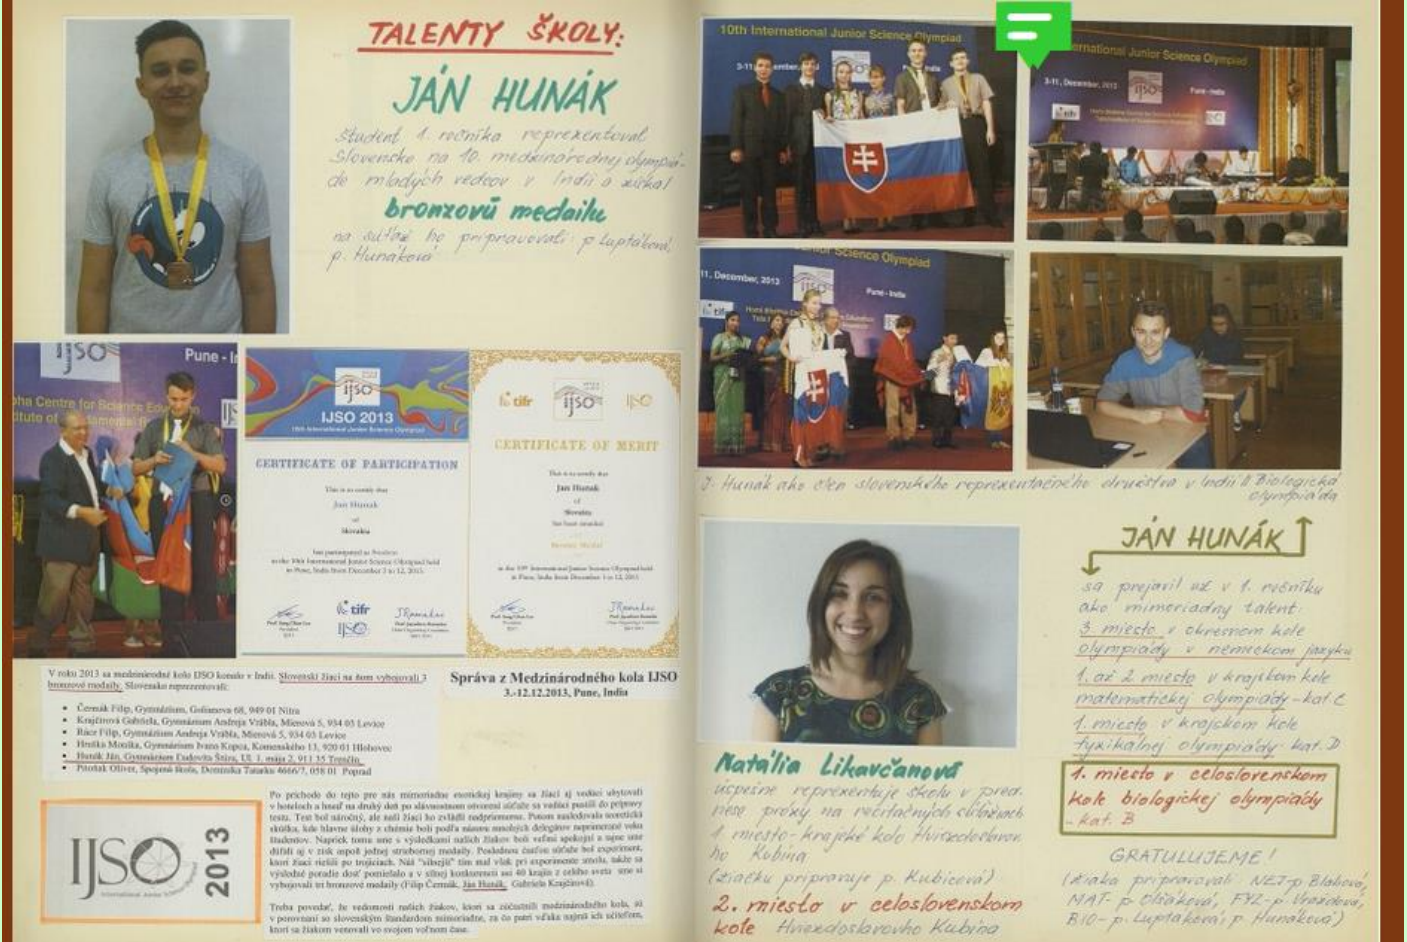 TALENTY ŠKOLY:
JÁN HUNÁK
študent 1. ročníka reprezentoval
Slovensko na 10. medzinárodnej olympiá-
de mladých vedcov v Indii a získal
bronzovú medailu
na súťaž ho pripravovali: p. Luptáková,
p. Hunáková
Pune - In
IJSO 2013
10th International Junior Science Olympiad
CERTIFICATE OF PARTICIPATION
This is to certify that
Jan Hunak
of
Slovakia
has participated as Student
in the 10th International Junior Science Olympiad held
in Pune, India from December 3 to 12, 2013.
tifr
tifr
IJSO
CERTIFICATE OF MERIT
This is to certify that
Jan Hunak
of
Slovakia
has been awarded
Bronze Medal
in the 10th International Junior Science Olympiad held
in Pune, India from December 3 to 12, 2013.
V roku 2013 sa medzinárodné kolo IJSO konalo v Indii. Slovenskí žiaci na ňom vybojovali 3
bronzové medaily. Slovensko reprezentovali:
Čermák Filip, Gymnázium, Golianova 68, 949 01 Nitra
Krajčírová Gabriela, Gymnázium Andreja Vrábla, Mierová 5, 934 03 Levice
Rácz Filip, Gymnázium Andreja Vrábla, Mierová 5, 934 03 Levice
Hruška Monika, Gymnázium Ivana Kupca, Komenského 13, 920 01 Hlohovec
Hunák Ján, Gymnázium Ľudovíta Štúra, Ul. 1. mája 2, 911 35 Trenčín
Oliver, Spojená škola, Dominika Tatarku 4666/7, 058 01 Poprad
Správa z Medzinárodného kola IJSO
3.-12.12.2013, Pune, India
IJSO
2013
International Junior Science Olympiad
Po príchode do tejto pre nás mimoriadne exotickej krajiny sa žiaci aj vedúci ubytovali
v hoteloch a hneď na druhý deň po slávnostnom otvorení súťaže sa vedúci pustili do prípravy
testu. Test bol náročný, ale naši žiaci ho zvládli nadpriemerne. Potom nasledovala teoretická
skúška, kde hlavne úlohy z chémie boli podľa názoru mnohých delegátov neprimerané veku
študentov. Napriek tomu sme s výsledkami našich žiakov boli veľmi spokojní a tajne sme
dúfali aj v zisk aspoň jednej striebornej medaily. Poslednou časťou súťaže bol experiment,
ktorí žiaci riešili po trojiciach. Náš "silnejší" tím mal však pri experimente smolu, takže sa
výsledné poradie dosť pomiešalo a v silnej konkurencii asi 40 krajín z celého sveta sme si
vybojovali tri bronzové medaily (Filip Čermák, Ján Hunák, Gabriela Krajčírová).
Treba povedať, že vedomosti našich žiakov, ktorí sa zúčastnili medzinárodného kola, sú
v porovnaní so slovenským štandardom mimoriadne, za čo patrí vďaka najmä ich učiteľom,
ktorí sa žiakom venovali vo svojom voľnom čase.
10th International Junior Science Olympiad
International Junior Science Olympiad
3-11, December, 2013
Pune-India
Junior Science Olympiad
11, December, 2013
Pune - India
J. Hunák ako člen slovenského reprezentačného družstva v Indii Biologická
olympiáda
JÁN HUNÁK
sa prejavil už v 1. ročníku
ako mimoriadny talent.
3. miesto v okresnom kole
olympiády v nemeckom jazyku
1. až 2. miesto v krajskom kole
matematickej olympiády-kat. C
1. miesto v krajskom kole
fyzikálnej olympiády- kat. D
1. miesto v celoslovenskom
kole biologickej olympiády
- kat. B
GRATULUJEME!
(žiaka pripravovali NEJ-p. Blahová,
MAT- p. Olšáková, FYZ- p. Vraždová,
BIO- p. Luptáková, p. Hunáková)
Natália Likavčanová
úspešne reprezentuje školu v pred-
nese prózy na recitačných súťažiach
1. miesto - krajské kolo Hviezdoslavov-
ho Kubína
(žiačku pripravuje p. Kubicová)
2. miesto v celoslovenskom
kole Hviezdoslavovho Kubína